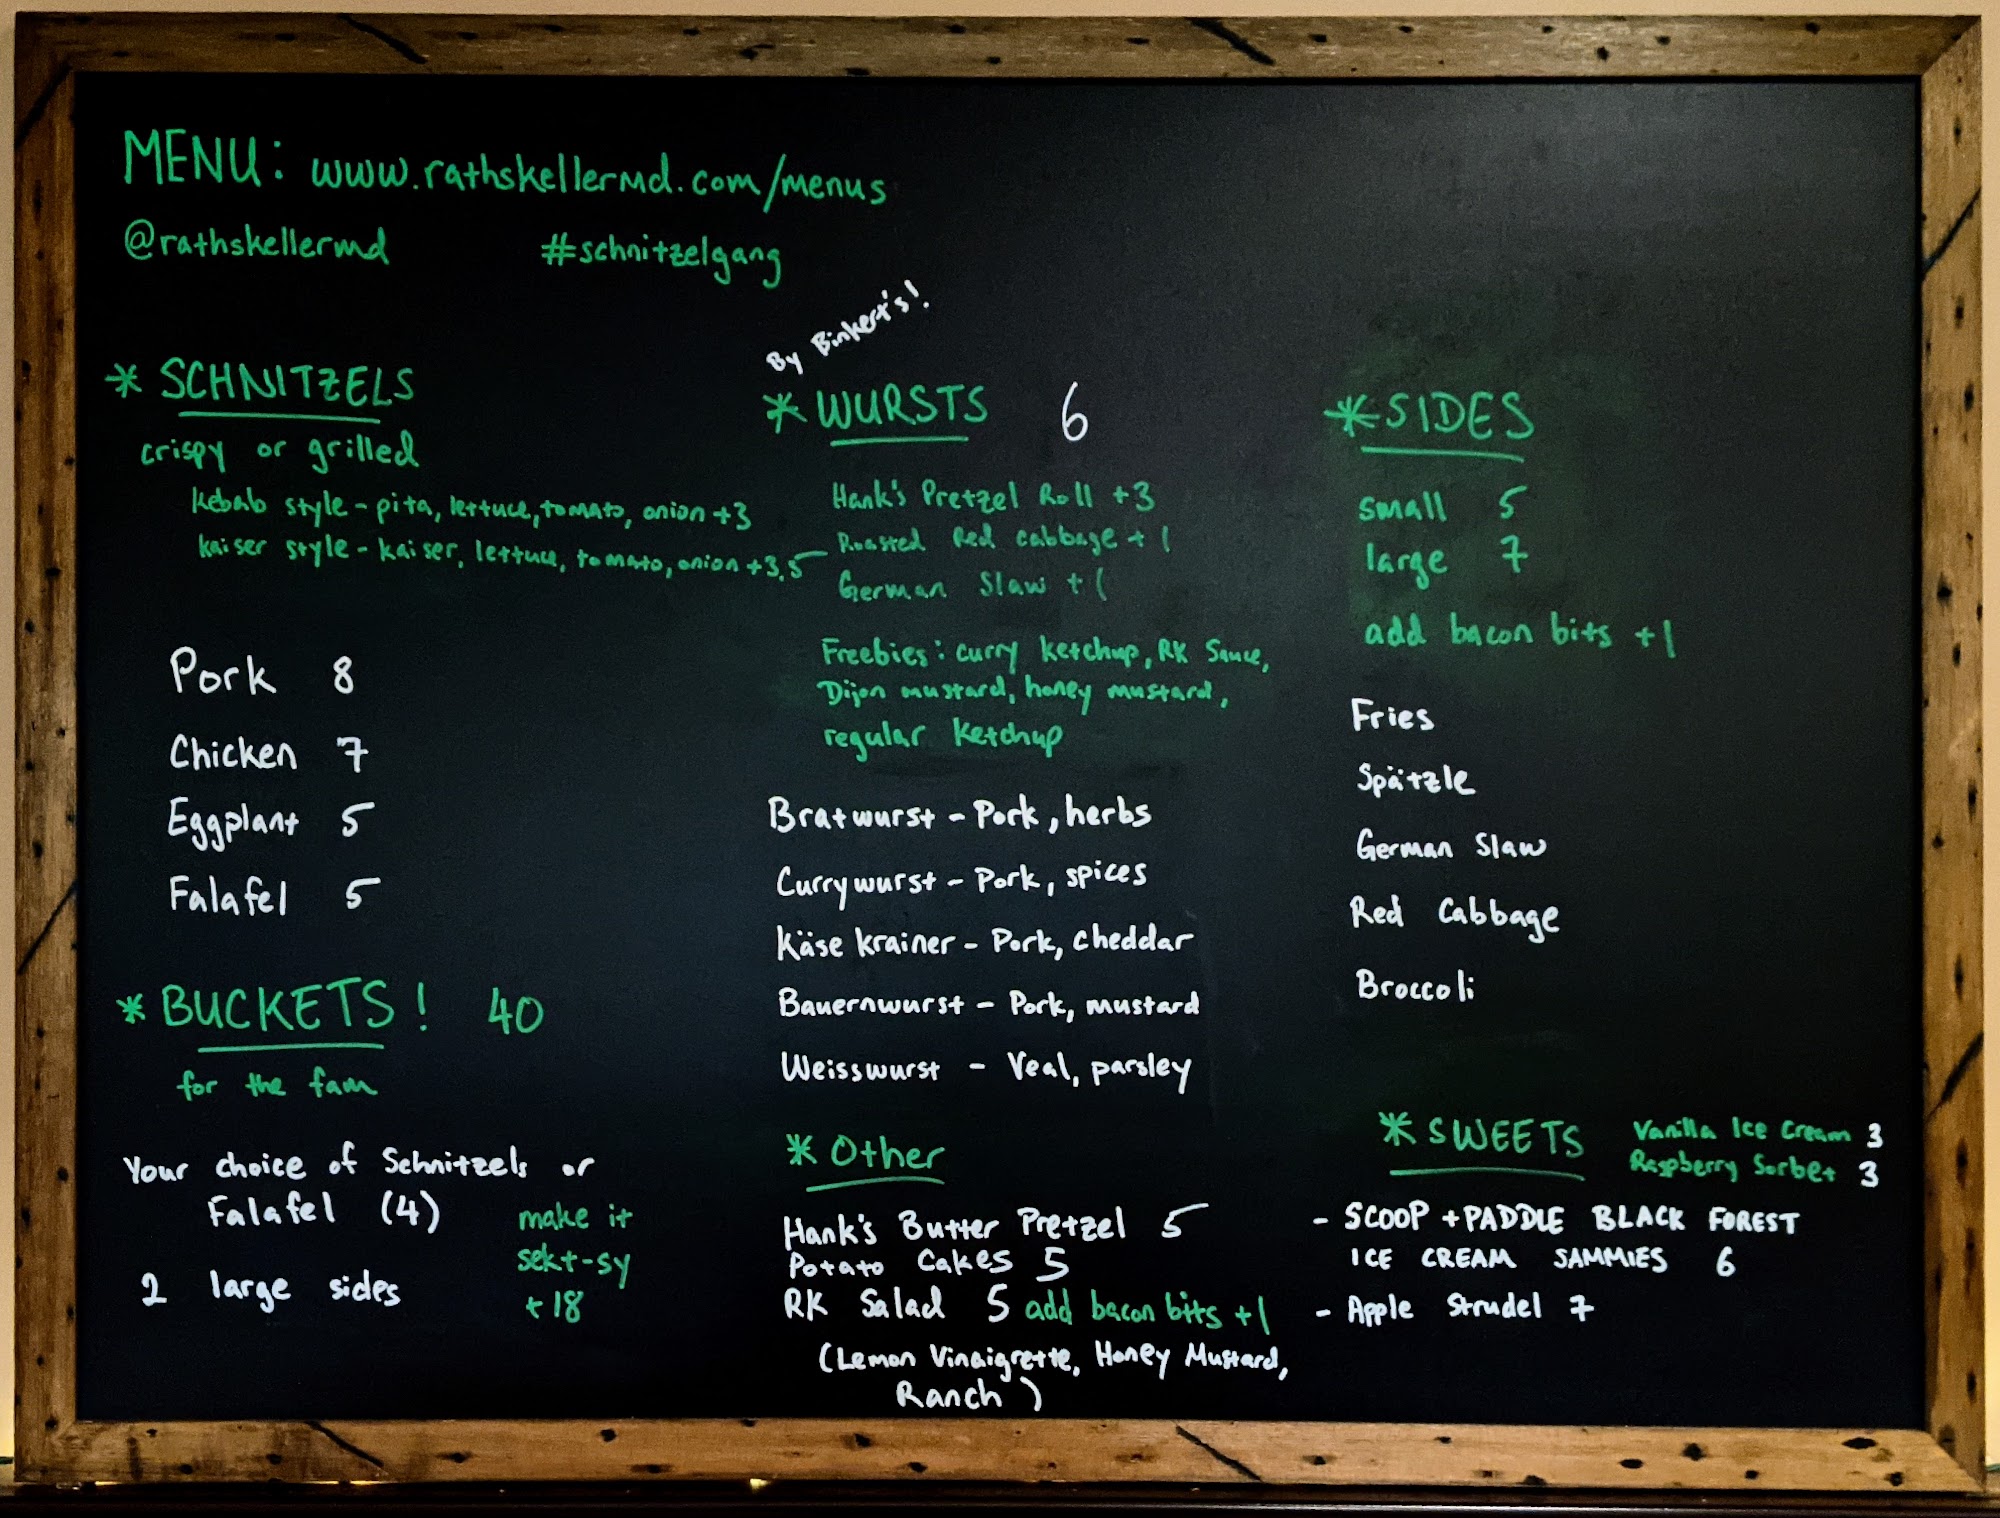 MENU: www.rathskellermd.com/menus
@rathskellermd #schnitzelgang
* SCHNITZELS
crispy or grilled
kebab style - pita, lettuce, tomato, onion +3
kaiser style - kaiser, lettuce, tomato, onion +3.5
Pork 8
Chicken 7
Eggplant 5
Falafel 5
* BUCKETS! 40
for the fam
Your choice of Schnitzels or
Falafel (4)
2 large sides
make it
sekt-sy
+18
By Binkert's!
* WURSTS 6
Hank's Pretzel Roll +3
Roasted Red Cabbage +1
German Slaw +1
Freebies: curry ketchup, RK Sauce,
Dijon mustard, honey mustard,
regular ketchup
Bratwurst - Pork, herbs
Currywurst - Pork, spices
Käse krainer - Pork, cheddar
Bauernwurst - Pork, mustard
Weisswurst - Veal, parsley
* Other
Hank's Butter Pretzel 5
Potato Cakes 5
RK Salad 5 add bacon bits +1
(Lemon Vinaigrette, Honey Mustard,
Ranch)
* SIDES
small 5
large 7
add bacon bits +1
Fries
Spätzle
German Slaw
Red Cabbage
Broccoli
* SWEETS
Vanilla Ice Cream 3
Raspberry Sorbet 3
- SCOOP + PADDLE BLACK FOREST
ICE CREAM SAMMIES 6
- Apple Strudel 7